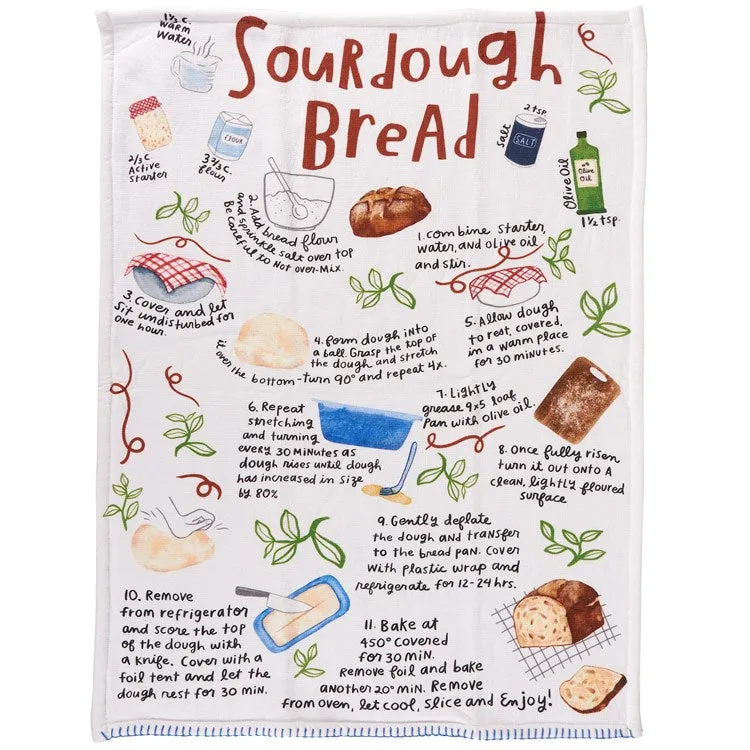 Sourdough
Bread
1 1/3 c.
warm
water
2/3 c.
Active
starter
3 2/3 c.
flour
FLOUR
Salt
2 tsp
SALT
Olive Oil
Olive
Oil
1 1/2 tsp.
1. Combine starter,
water, and olive oil
and stir.
2. Add bread flour
and sprinkle salt over top
Be careful to Not over-mix.
3. Cover and let
sit undisturbed for
one hour.
4. Form dough into
a ball. Grasp the top of
the dough and stretch
it over the bottom-turn 90° and repeat 4x.
5. Allow dough
to rest, covered,
in a warm place
for 30 minutes.
6. Repeat
stretching
and turning
every 30 minutes as
dough rises until dough
has increased in size
by 80%
7. Lightly
grease 9x5 loaf
pan with olive oil.
8. Once fully risen
turn it out onto a
clean, lightly floured
surface
9. Gently deflate
the dough and transfer
to the bread pan. Cover
with plastic wrap and
refrigerate for 12-24 hrs.
10. Remove
from refrigerator
and score the top
of the dough with
a knife. Cover with a
foil tent and let the
dough rest for 30 min.
11. Bake at
450° covered
for 30 min.
Remove foil and bake
another 20° min. Remove
from oven, let cool, slice and Enjoy!